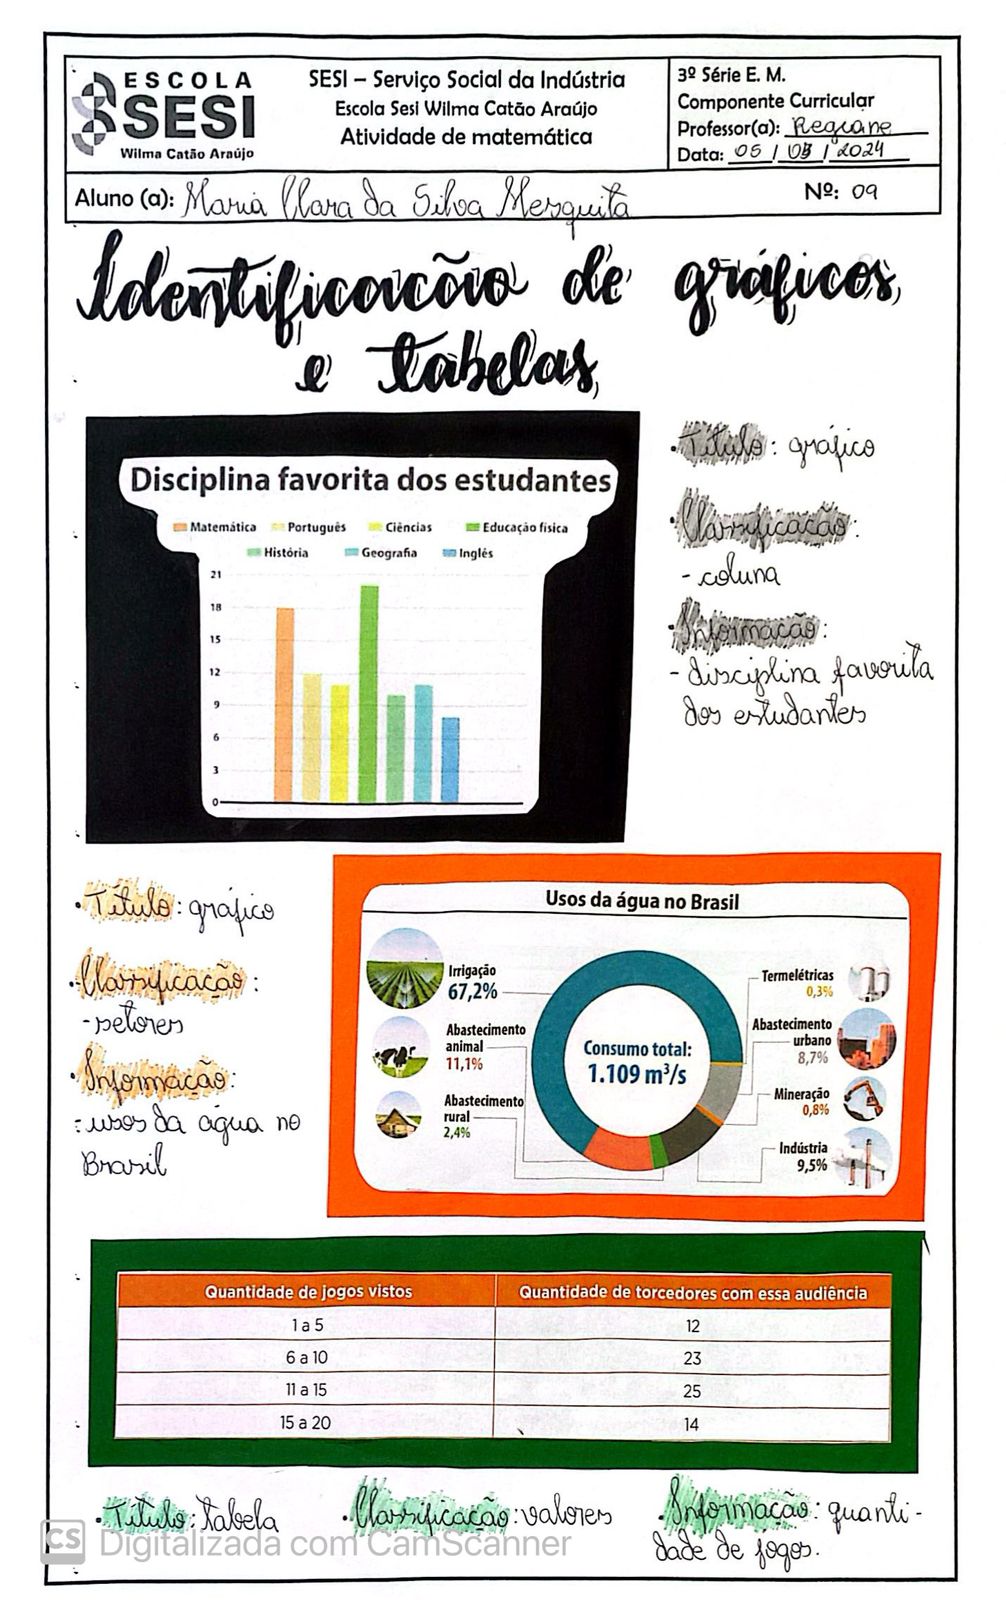 ESCOLA
SESI
Wilma Catão Araújo
SESI – Serviço Social da Indústria
Escola Sesi Wilma Catão Araújo
Atividade de matemática
3º Série E. M.
Componente Curricular
Professor(a): Regiane
Data: 05 / 03 / 2024
Aluno (a): Maria Clara da Silva Mesquita
Nº: 09
Identificação de gráficos
e tabelas
Disciplina favorita dos estudantes
Matemática Português Ciências Educação física
História Geografia Inglês
21
18
15
12
9
6
3
0
• Título: gráfico
• Classificação:
- coluna
• Informação:
- disciplina favorita
dos estudantes
• Título: gráfico
• Classificação:
- setores
• Informação:
- usos da água no
Brasil
Usos da água no Brasil
Irrigação
67,2%
Abastecimento
animal
11,1%
Abastecimento
rural
2,4%
Consumo total:
1.109 m³/s
Termelétricas
0,3%
Abastecimento
urbano
8,7%
Mineração
0,8%
Indústria
9,5%
Quantidade de jogos vistos Quantidade de torcedores com essa audiência
1 a 5 12
6 a 10 23
11 a 15 25
15 a 20 14
• Título: tabela
• Classificação: valores
• Informação: quanti-
dade de jogos.
CS Digitalizada com CamScanner